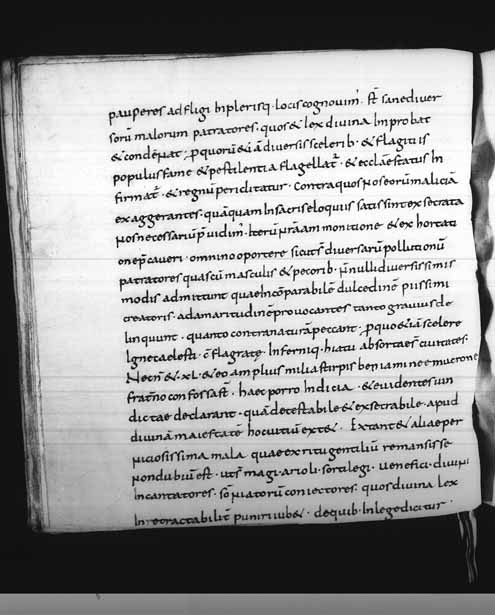 pauperes adfligi inplerisq· locis cognovim̄· st̄ sane diver
sorū malorum patratores· quos & lex divina improbat
& condēnat· p̄ quorū &iā diversis scelerib· & flagitiis
populus fame & pestilentia flagellat̄· & ecclae status in
firmat̄· & regnū periditatur· contra quos nos eorū maliciā
exaggerantes· quāquam in sacris eloquiis satis sint exsecrata
nos necessariū p̄vidim̄· iterū nr̄a ammonitione & exhortati
one p̄caveri· omnino oportere sicut st̄ diversarū pollutionū
patratores quas cū masculis & pecorib· nn̄ulli diversissimis
modis admittunt quae incōparabilē dulcedinē piissimi
creatoris· ad amaritudinē provocantes tanto gravius de
linquunt· quanto contra naturā peccant· p̄ quo &iā scelere
igne caelesti· conflagratę· inferniq· hiatu absortae st̄ civitates·
Necn̄ &· xl· & eo amplius milia stirpis beniamineę mucrone
frat̄no confossa st̄· haec porro indicia· & evidentes vin
dictae declarant· quā detestabile & exsecrabile· apud
divinā maiestatē hoc vitiū ext&· Extant & alia per
niciosissima mala quae ex ritu gentiliū remansisse
non dubiū est· ut st̄ magi· arioli· sortilegi· venefici· divini
incantatores· sōniatorū coniectores· quos divina lex
inretractabilit̄ puniri iub&· de quib· in lege dicitur·